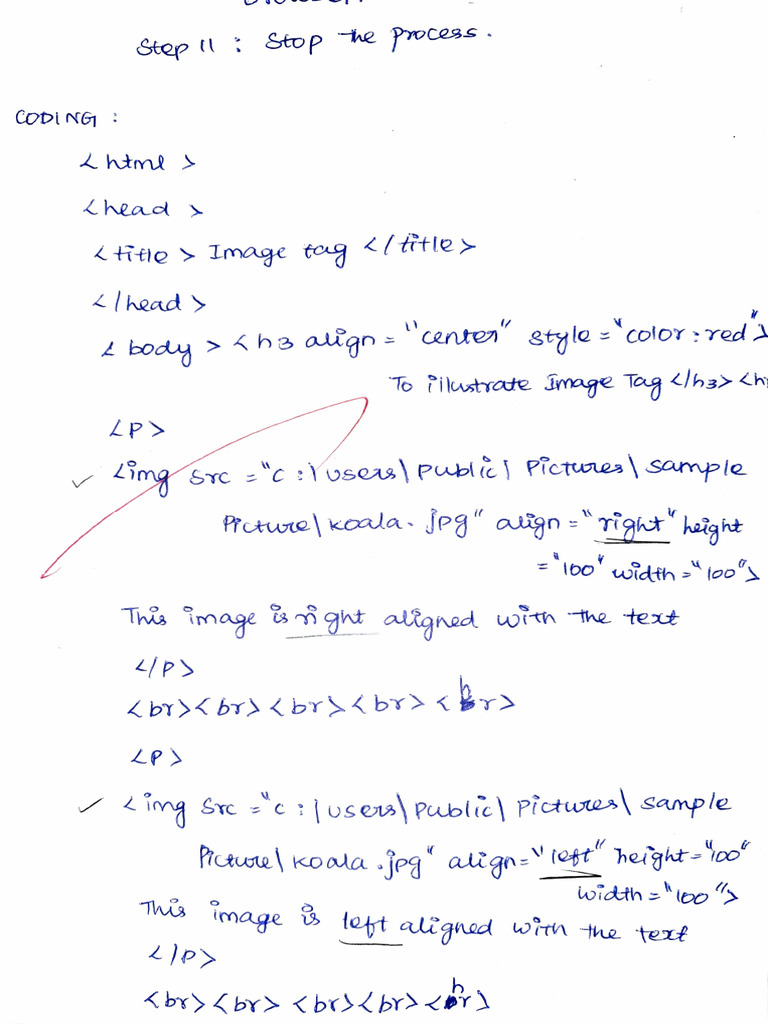 Step 11 : Stop the process.
CODING :
<html >
<head >
<title > Image tag </title>
</head>
<body > <h3 align = "center" style = "color : red">
To illustrate Image Tag </h3> <h
<P>
<img src = "c :\users\public\ Pictures\ sample
Picture\ koala. jpg" align = "right" height
= "100" width = "100">
This image is right aligned with the text
</P>
<br><br> <br> <br> <br>
<P>
<img src = "c :\users\public\ pictures\ sample
Picture\ koala .jpg" align = "left" height = "100"
width = "100">
This image is left aligned with the text
</P>
<br> <br> <br><br> <br>